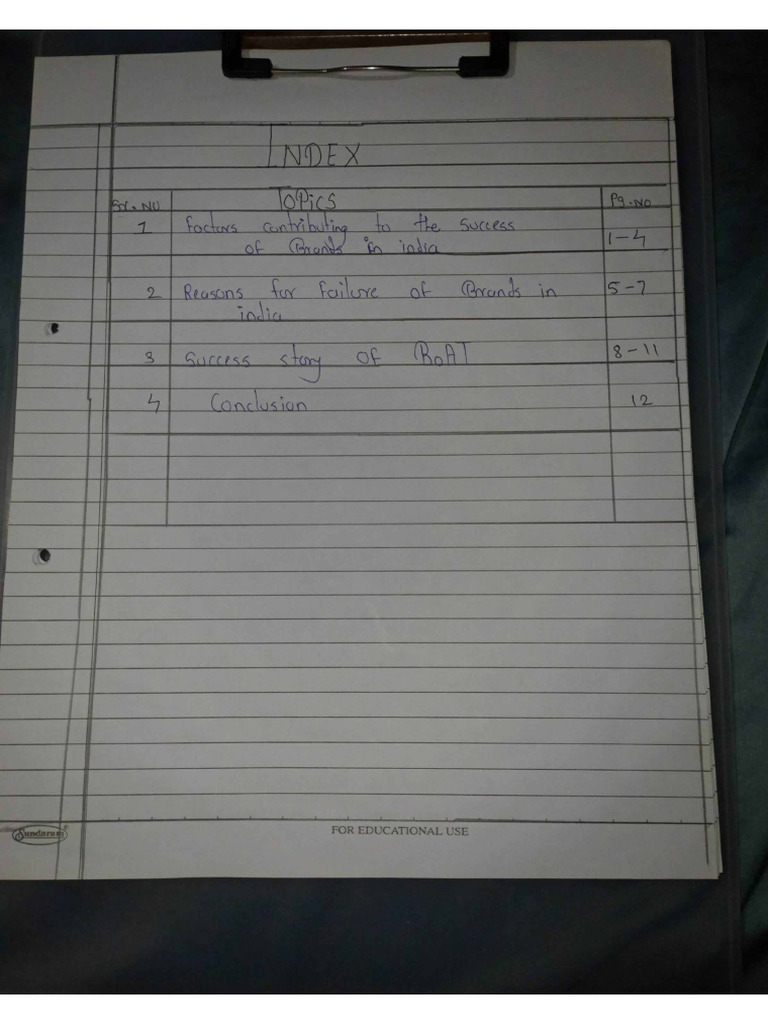 INDEX
Sr. No Topics Pg. No
1 Factors contributing to the Success
of Brands in india 1-4
2 Reasons for failure of Brands in 5-7
india
3 Success story of BoAT 8-11
4 Conclusion 12
Sundaram
FOR EDUCATIONAL USE